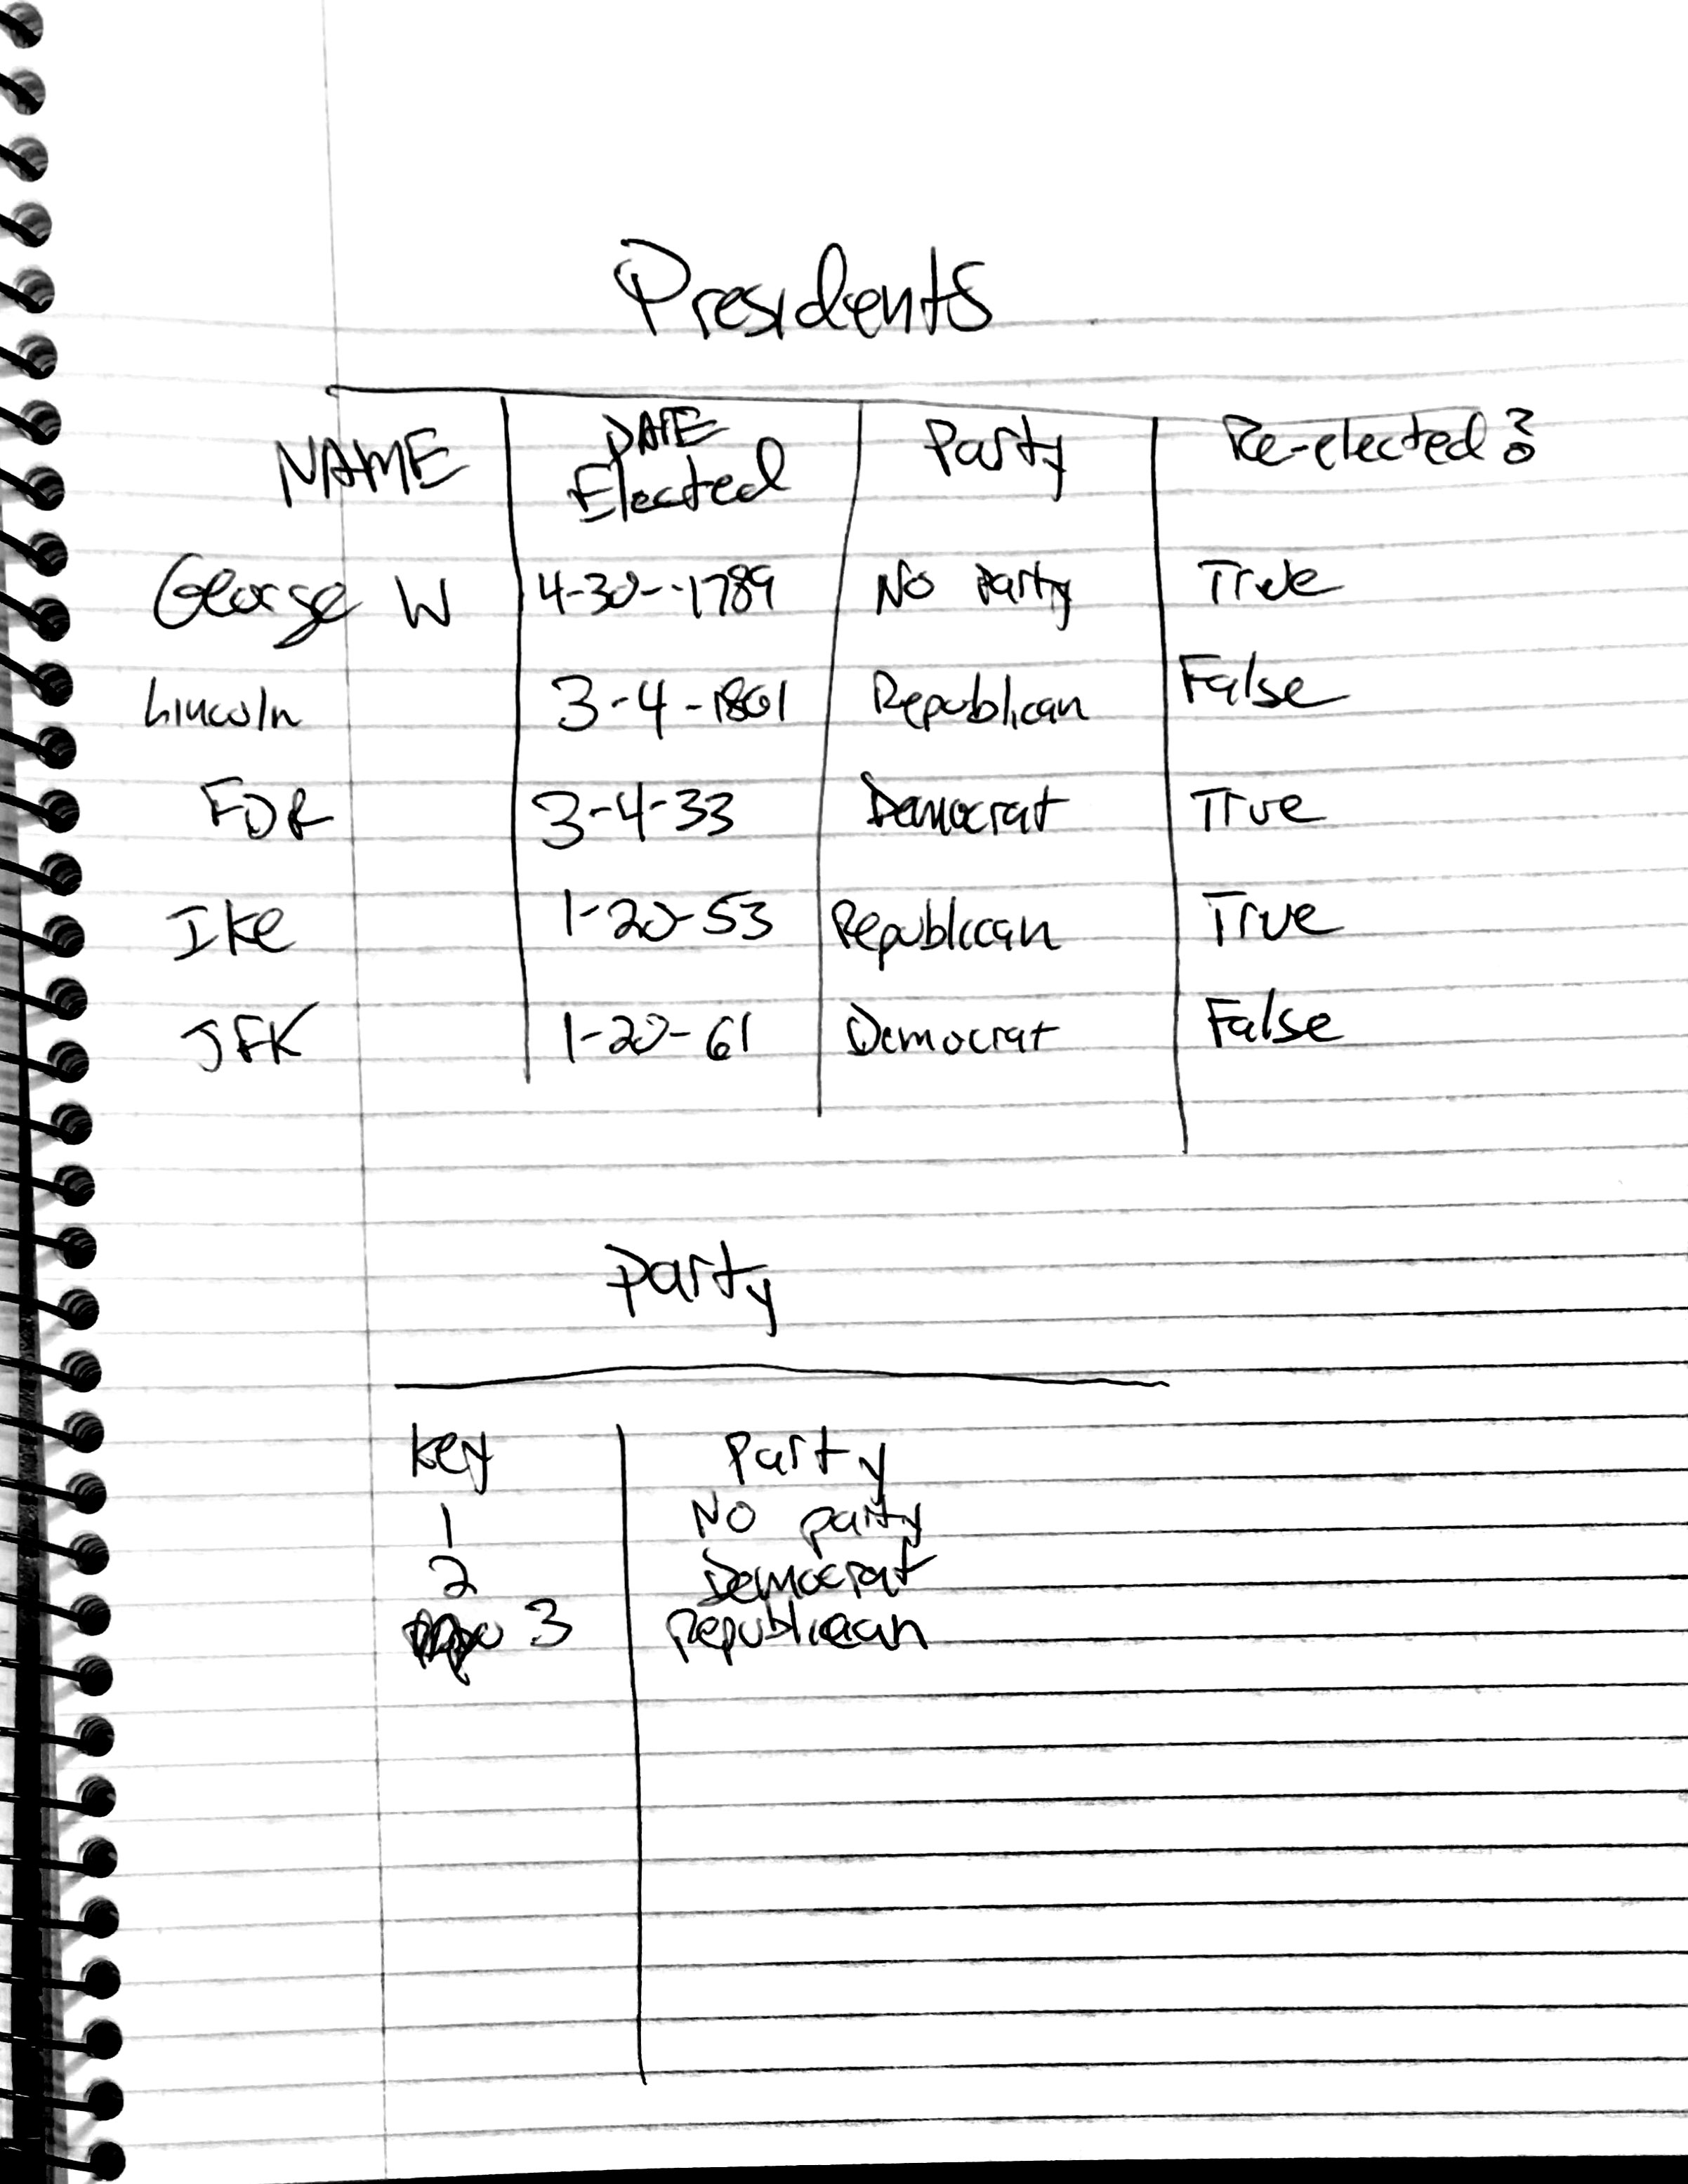 Presidents
NAME DATE Elected Party Re-elected?
George W 4-30-1789 No Party True
Lincoln 3-4-1861 Republican False
FDR 3-4-33 Democrat True
Ike 1-20-53 Republican True
JFK 1-20-61 Democrat False
Party
key Party
1 No party
2 Democrat
3 Republican